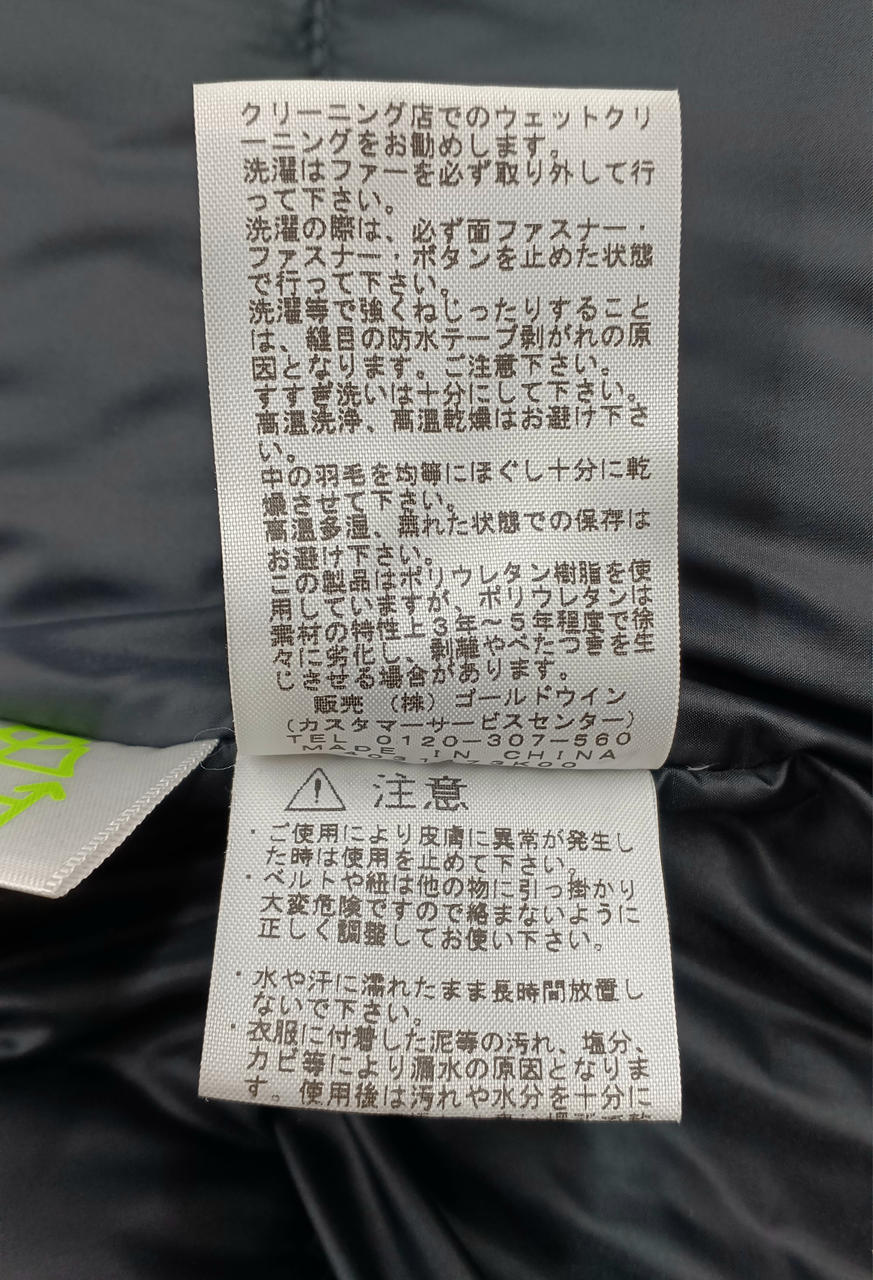 クリーニング店でのウェットクリ
ーニングをお勧めします。
洗濯はファーを必ず取り外して行
って下さい。
洗濯の際は、必ず面ファスナー・
ファスナー・ボタンを止めた状態
で行って下さい。
洗濯等で強くねじったりすること
は、縫目の防水テープ剥がれの原
因となります。ご注意下さい。
すすぎ洗いは十分にして下さい。
高温洗浄、高温乾燥はお避け下さ
い。
中の羽毛を均等にほぐし十分に乾
燥させて下さい。
高温多湿、蒸れた状態での保存は
お避け下さい。
この製品はポリウレタン樹脂を使
用していますが、ポリウレタンは
素材の特性上3年〜5年程度で徐
々に劣化し、剥離やべたつきを生
じさせる場合があります。
販売 (株) ゴールドウイン
(カスタマーサービスセンター)
TEL 0120-307-560
MADE IN CHINA
注意
・ご使用により皮膚に異常が発生し
た時は使用を止めて下さい。
・ベルトや紐は他の物に引っ掛かり
大変危険ですので絡まないように
正しく調整してお使い下さい。
・水や汗に濡れたまま長時間放置し
ないで下さい。
・衣服に付着した泥等の汚れ、塩分、
カビ等により漏水の原因となりま
す。使用後は汚れや水分を十分に